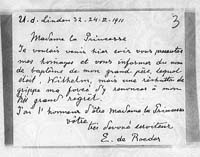 U. d. Linden 32. 24. II. 1911
3
Madame la Princesse
Je voulais venir hier soir vous presenter
mes hommages et vous informer du nom
de baptême de mon grand père, lequel
était Wilhelm, mais une rechute de
grippe m'a forcé d'y renoncer à mon
grand regret.
J'ai l'honneur d'être Madame la Princesse
vôtre
très dévoué serviteur
E. de Roeder